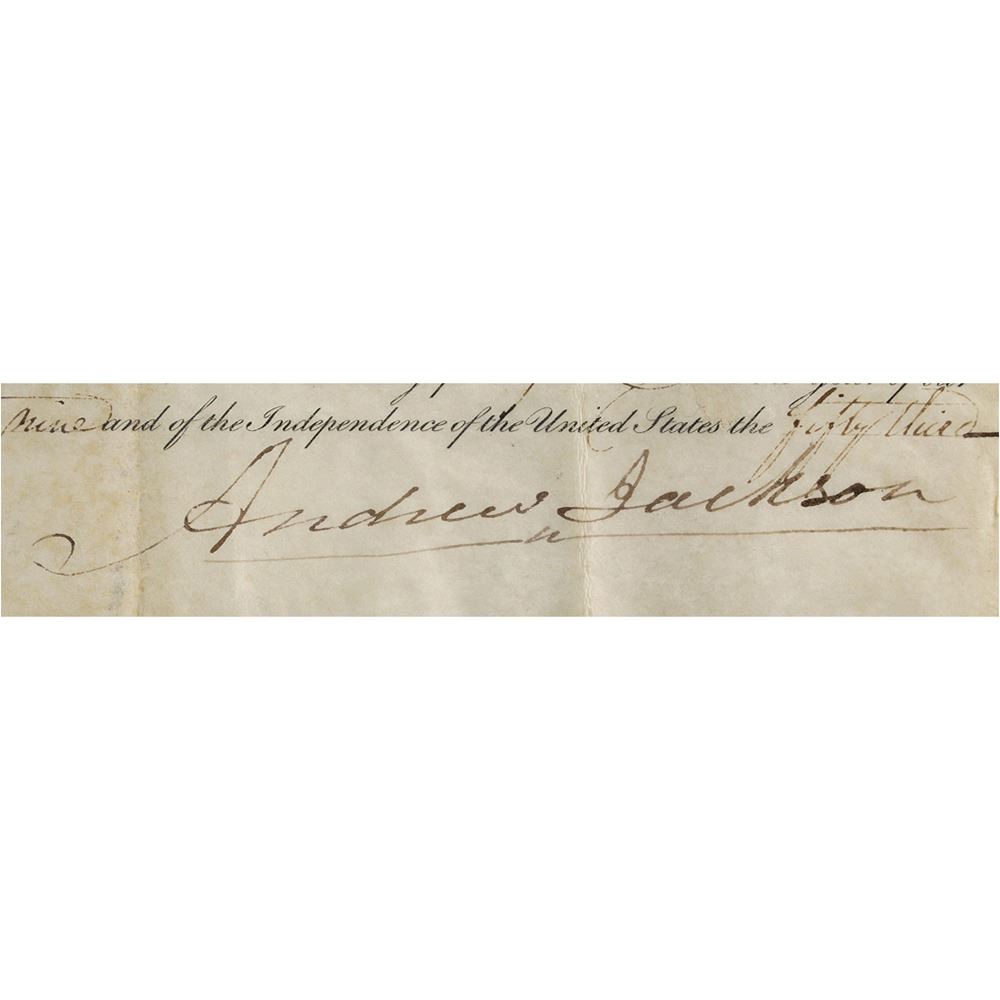 nine and of the Independence of the United States the fifty third
Andrew Jackson